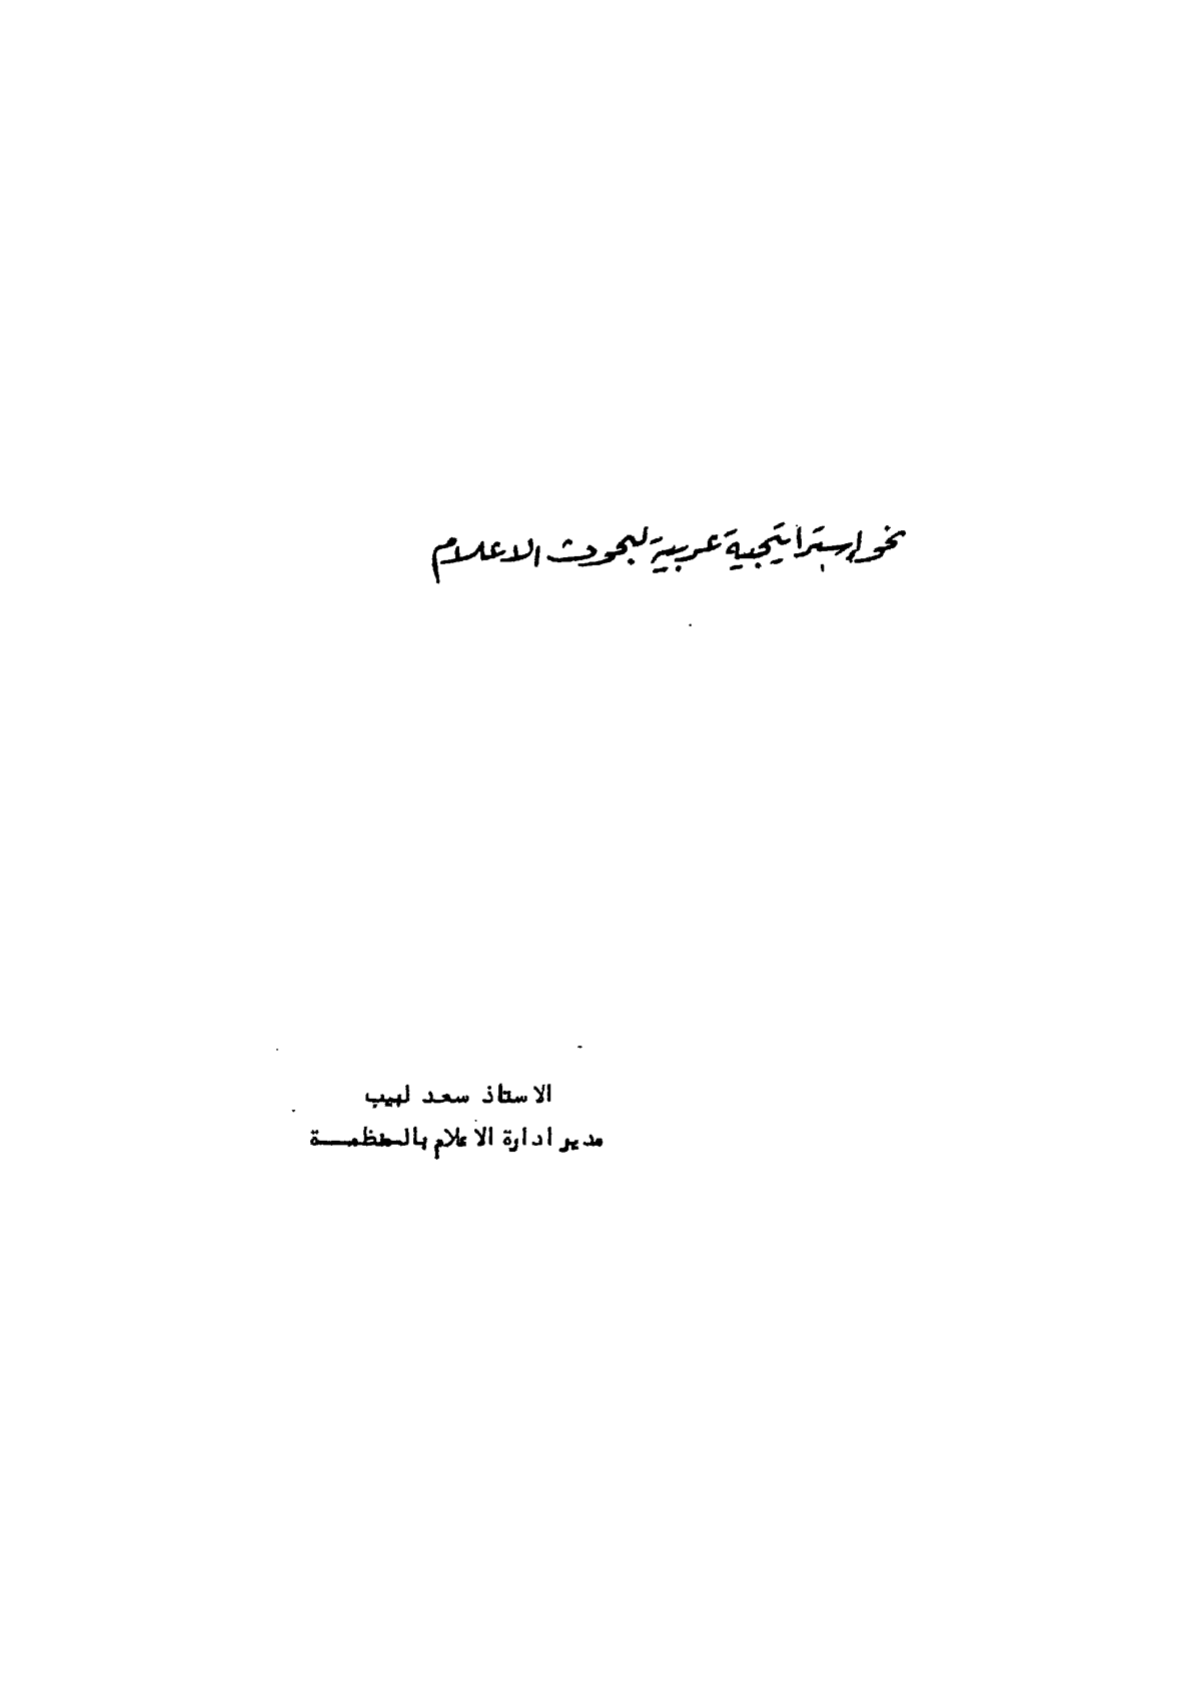 نحو إستراتيجية عربية لبحوث الاعلام
الاستاذ سعد لبيب
مدير ادارة الاعلام بالمنظمـــة